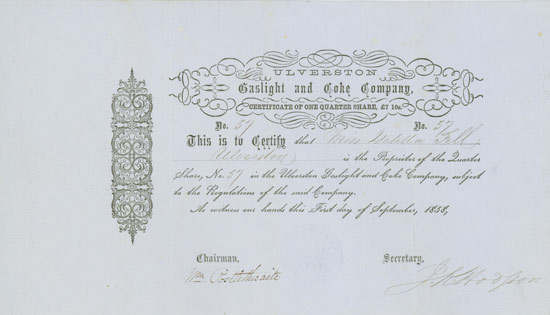 ULVERSTON
Gaslight and Coke Company.
CERTIFICATE OF ONE QUARTER SHARE, £7 10s.
No. 57 No. 57
This is to Certify that Miss Fell
Ulverston, is the Proprietor of the Quarter
Share, No. 57 in the Ulverston Gaslight and Coke Company, subject
to the Regulations of the said Company.
As witness our hands this First day of September, 1858,
Chairman, Secretary,
Wm Postlethwaite